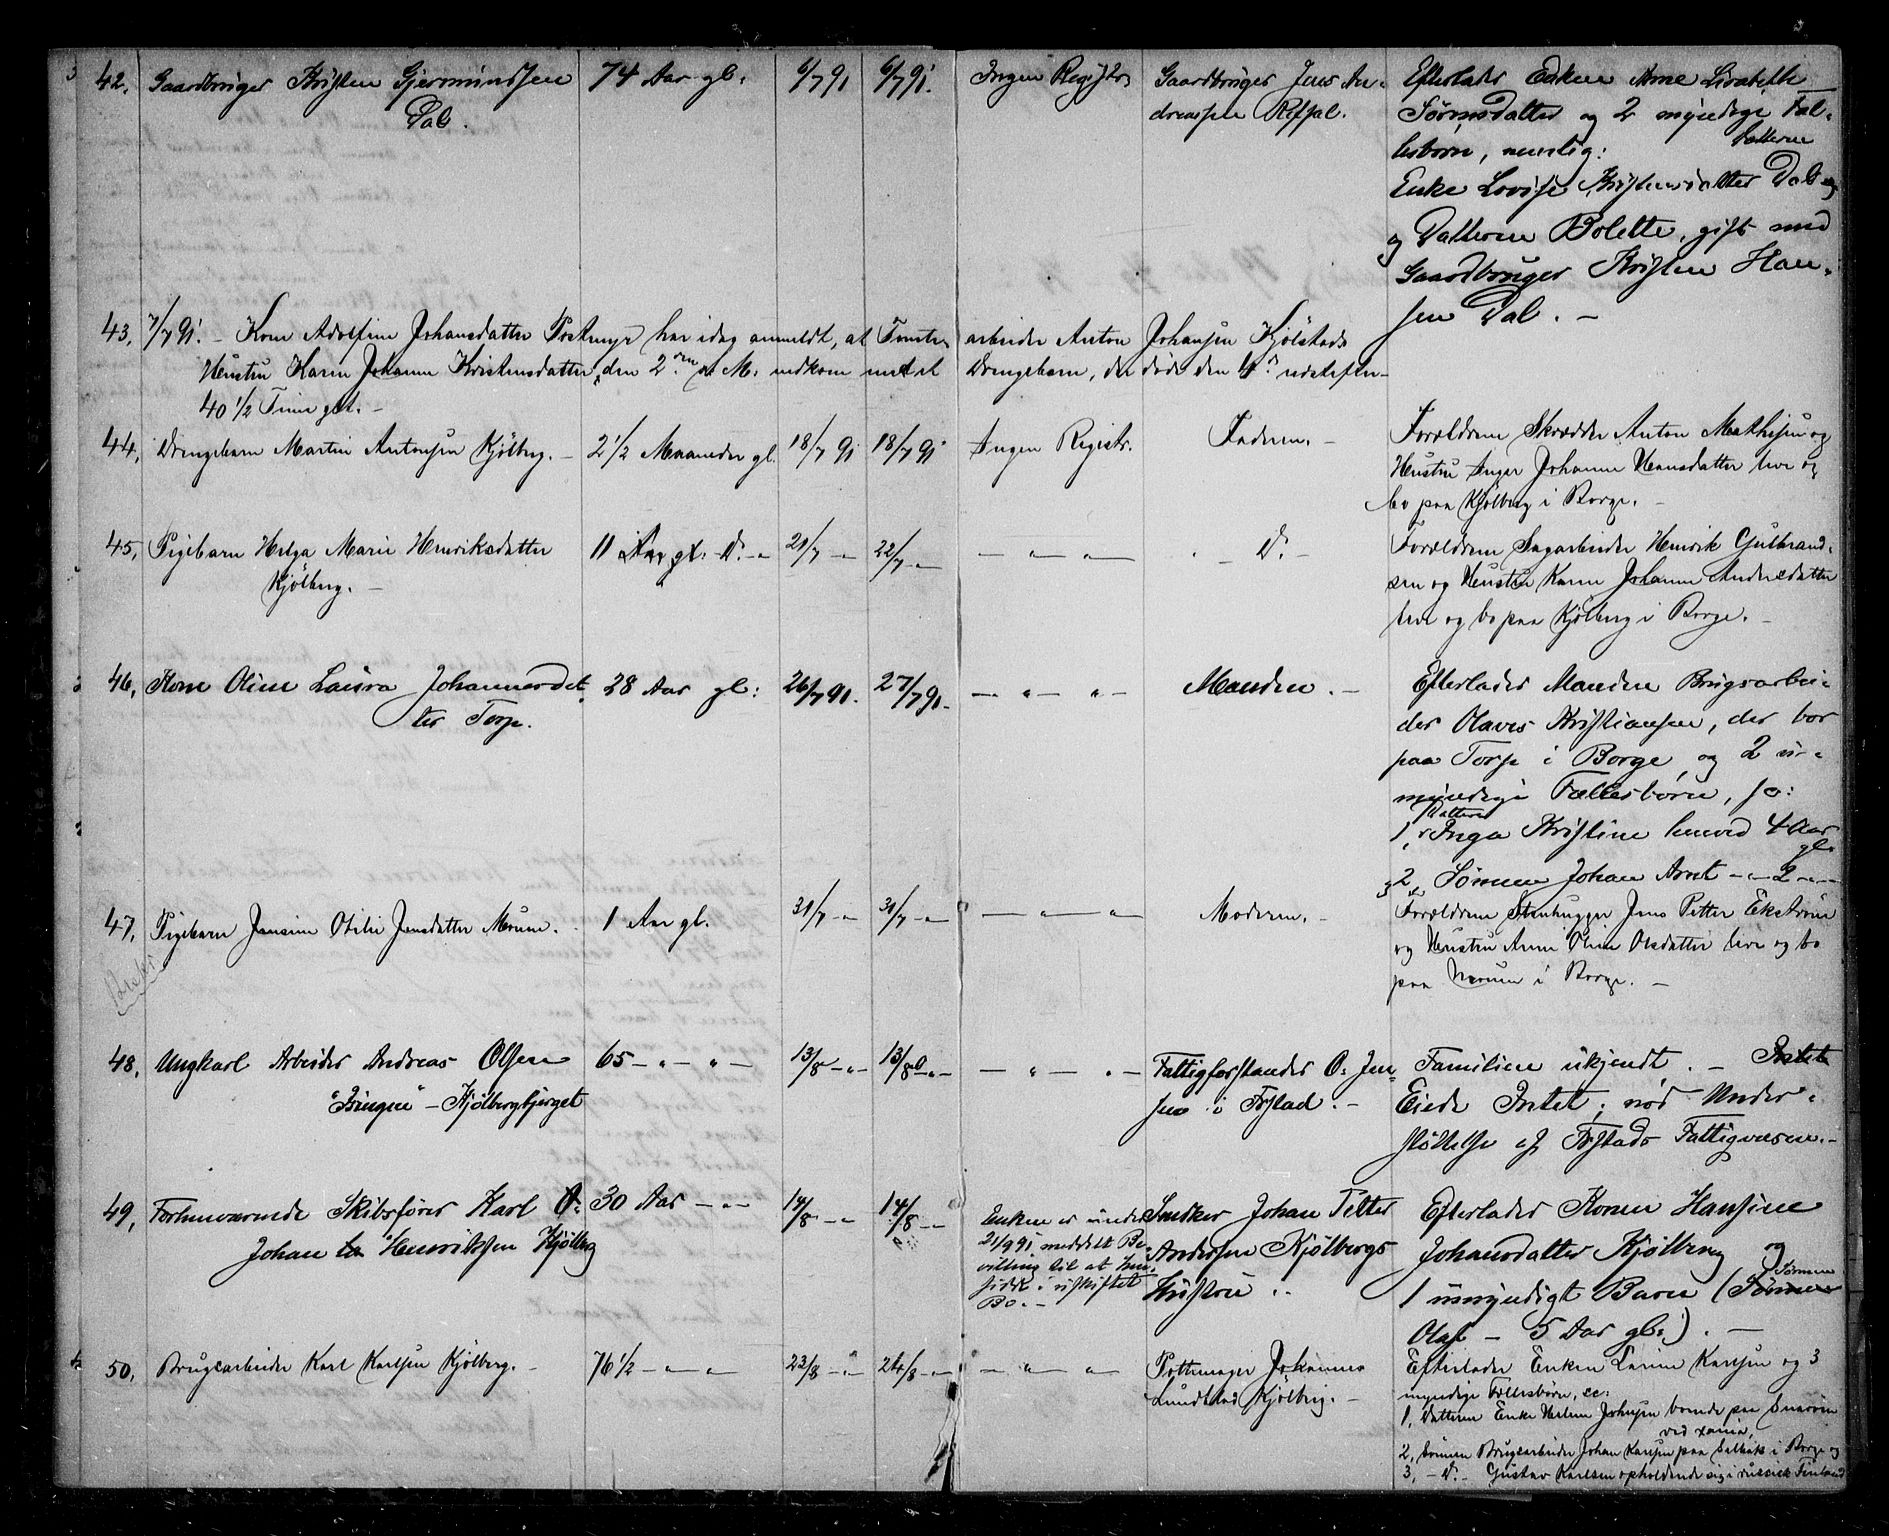 42. Gaardbruger Kristen Gjermundsen
Dal.
74 Aar gl.
6/7 91
6/7 91.
Ingen Registr.
Gaardbruger Jens An-
dreassen
Efterlader Enken Anne Lisabeth
Sørensdatter og 2 myndige Fæl-
lesbørn, nemlig:
Datteren
Enke Lovise Kristensdatter Dal og
og Datteren Bolette, gift med
Gaardbruger Kristen Han-
sen Dal. -
43. 7/7 91. - Kone Adolfine Johansdatter har idag anmeldt, at Tomte-
arbeider Anton Johansen Kjølstads
Hustru Karen Johanne Kristensdatter, den 2den d. M. nedkom med et
Drengebarn, der døde den 4de
40 1/2 Time glt. -
44, Drengebarn Martin Antonsen Kjølberg. -
2 1/2 Maaneder gl.
18/7 91
18/7 91
Ingen Registr.
Faderen. -
Forældrene Skrædder Anton Mathisen og
Hustru Inger Johanne Hansdatter leve og
bo paa Kjølberg i Borge. -
45, Pigebarn Helga Marie Henriksdatter
Kjølberg. -
11 Aar gl.
21/7 - "
22/7 - "
— " — " —
- Do. -
Forældrene Sagarbeider Henrik Gulbrand-
sen og Hustru Karen Johanne Andersdatter
leve og bo paa Kjølberg i Borge. -
46, Kone Oline Laura Johannesdat-
ter Torp.
28 Aar gl:
26/7 91.
27/7 91.
— " — " —
Manden. -
Efterlader Manden Brugsarbei-
der Olaves Kristiansen, der bor
paa Torp i Borge, og 2 u-
myndige Fællesbørn, so:
Datteren
1, Inga Kristine henved 4 Aar
gl.
2, Sønnen Johan Arnt - " - 2 - " -
47, Pigebarn Jensine Otilie Jensdatter Moum.
1 Aar gl.
31/7 - "
31/7 - "
— " — " —
Moderen. -
Forældrene Stenhugger Jens Petter Ekstrøm
og Hustru Anne Oline Olsdatter leve og bo
paa Moum i Borge. -
48, Ungkarl Arbeider Andreas Olsen
"Bingen" - Kjølbergbjerget
65 - " - " -
13/8 - " -
13/8 - " -
— " — " —
Fattigforstander O. Jen-
sen i
Familien ukjendt. - Intet
Eiede Intet; nød Under-
støttelse af Fattigvæsen. -
49, Forhenværende Skibsfører Karl
Johan Henriksen Kjølberg
30 Aar - " -
14/8 - "
14/8 - "
Enken er under
2/9 91 meddelt Be-
villing til at hen-
sidde i uskiftet
Bo. -
Snedker Johan Petter
Andersen Kjølbergs
Hustru.
Efterlader Konen Hansine
Johansdatter Kjølberg og
1 umyndigt Barn (Sønnen
Sønnen
Olaf - 5 Aar gl:). -
50, Brugsarbeider Karl Karlsen Kjølberg. -
76 1/2 - " - "
23/8 - "
24/8 - "
— " — " —
Pottemager Johannes
Lundstad Kjølberg. -
Efterlader Enken Karine Karlsen og 3
myndige Fællesbørn, sc:
1, Datteren Enke Helene Johnsen boende paa Snarøen
ved Xania,
2, Sønnen Brugsarbeider Johan Karlsen paa Selbak i Borge og
3, - Do. - Gustav Karlsen opholdende sig i russisk Finland